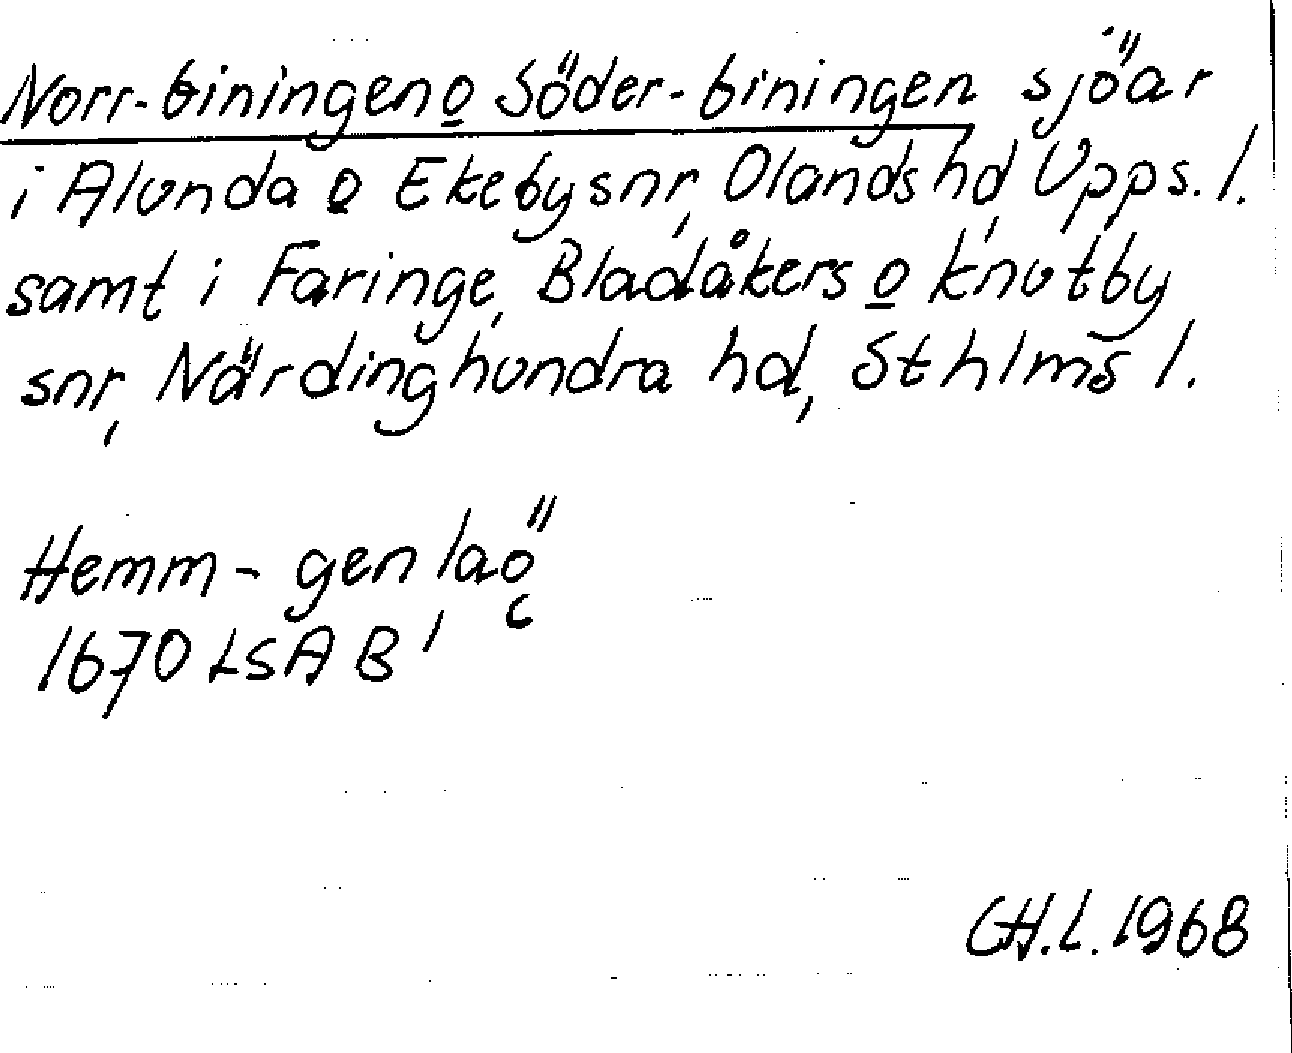 Norr-biningen o Söder-biningen, sjöar
i Alunda o Ekeby snr, Olands hd, Upps. l.
samt i Faringe, Bladåkers o Knutby
snr, Närdinghundra hd, Sthlms l.
Hemm-gen la
1670 LSA B'
CH.L. 1968